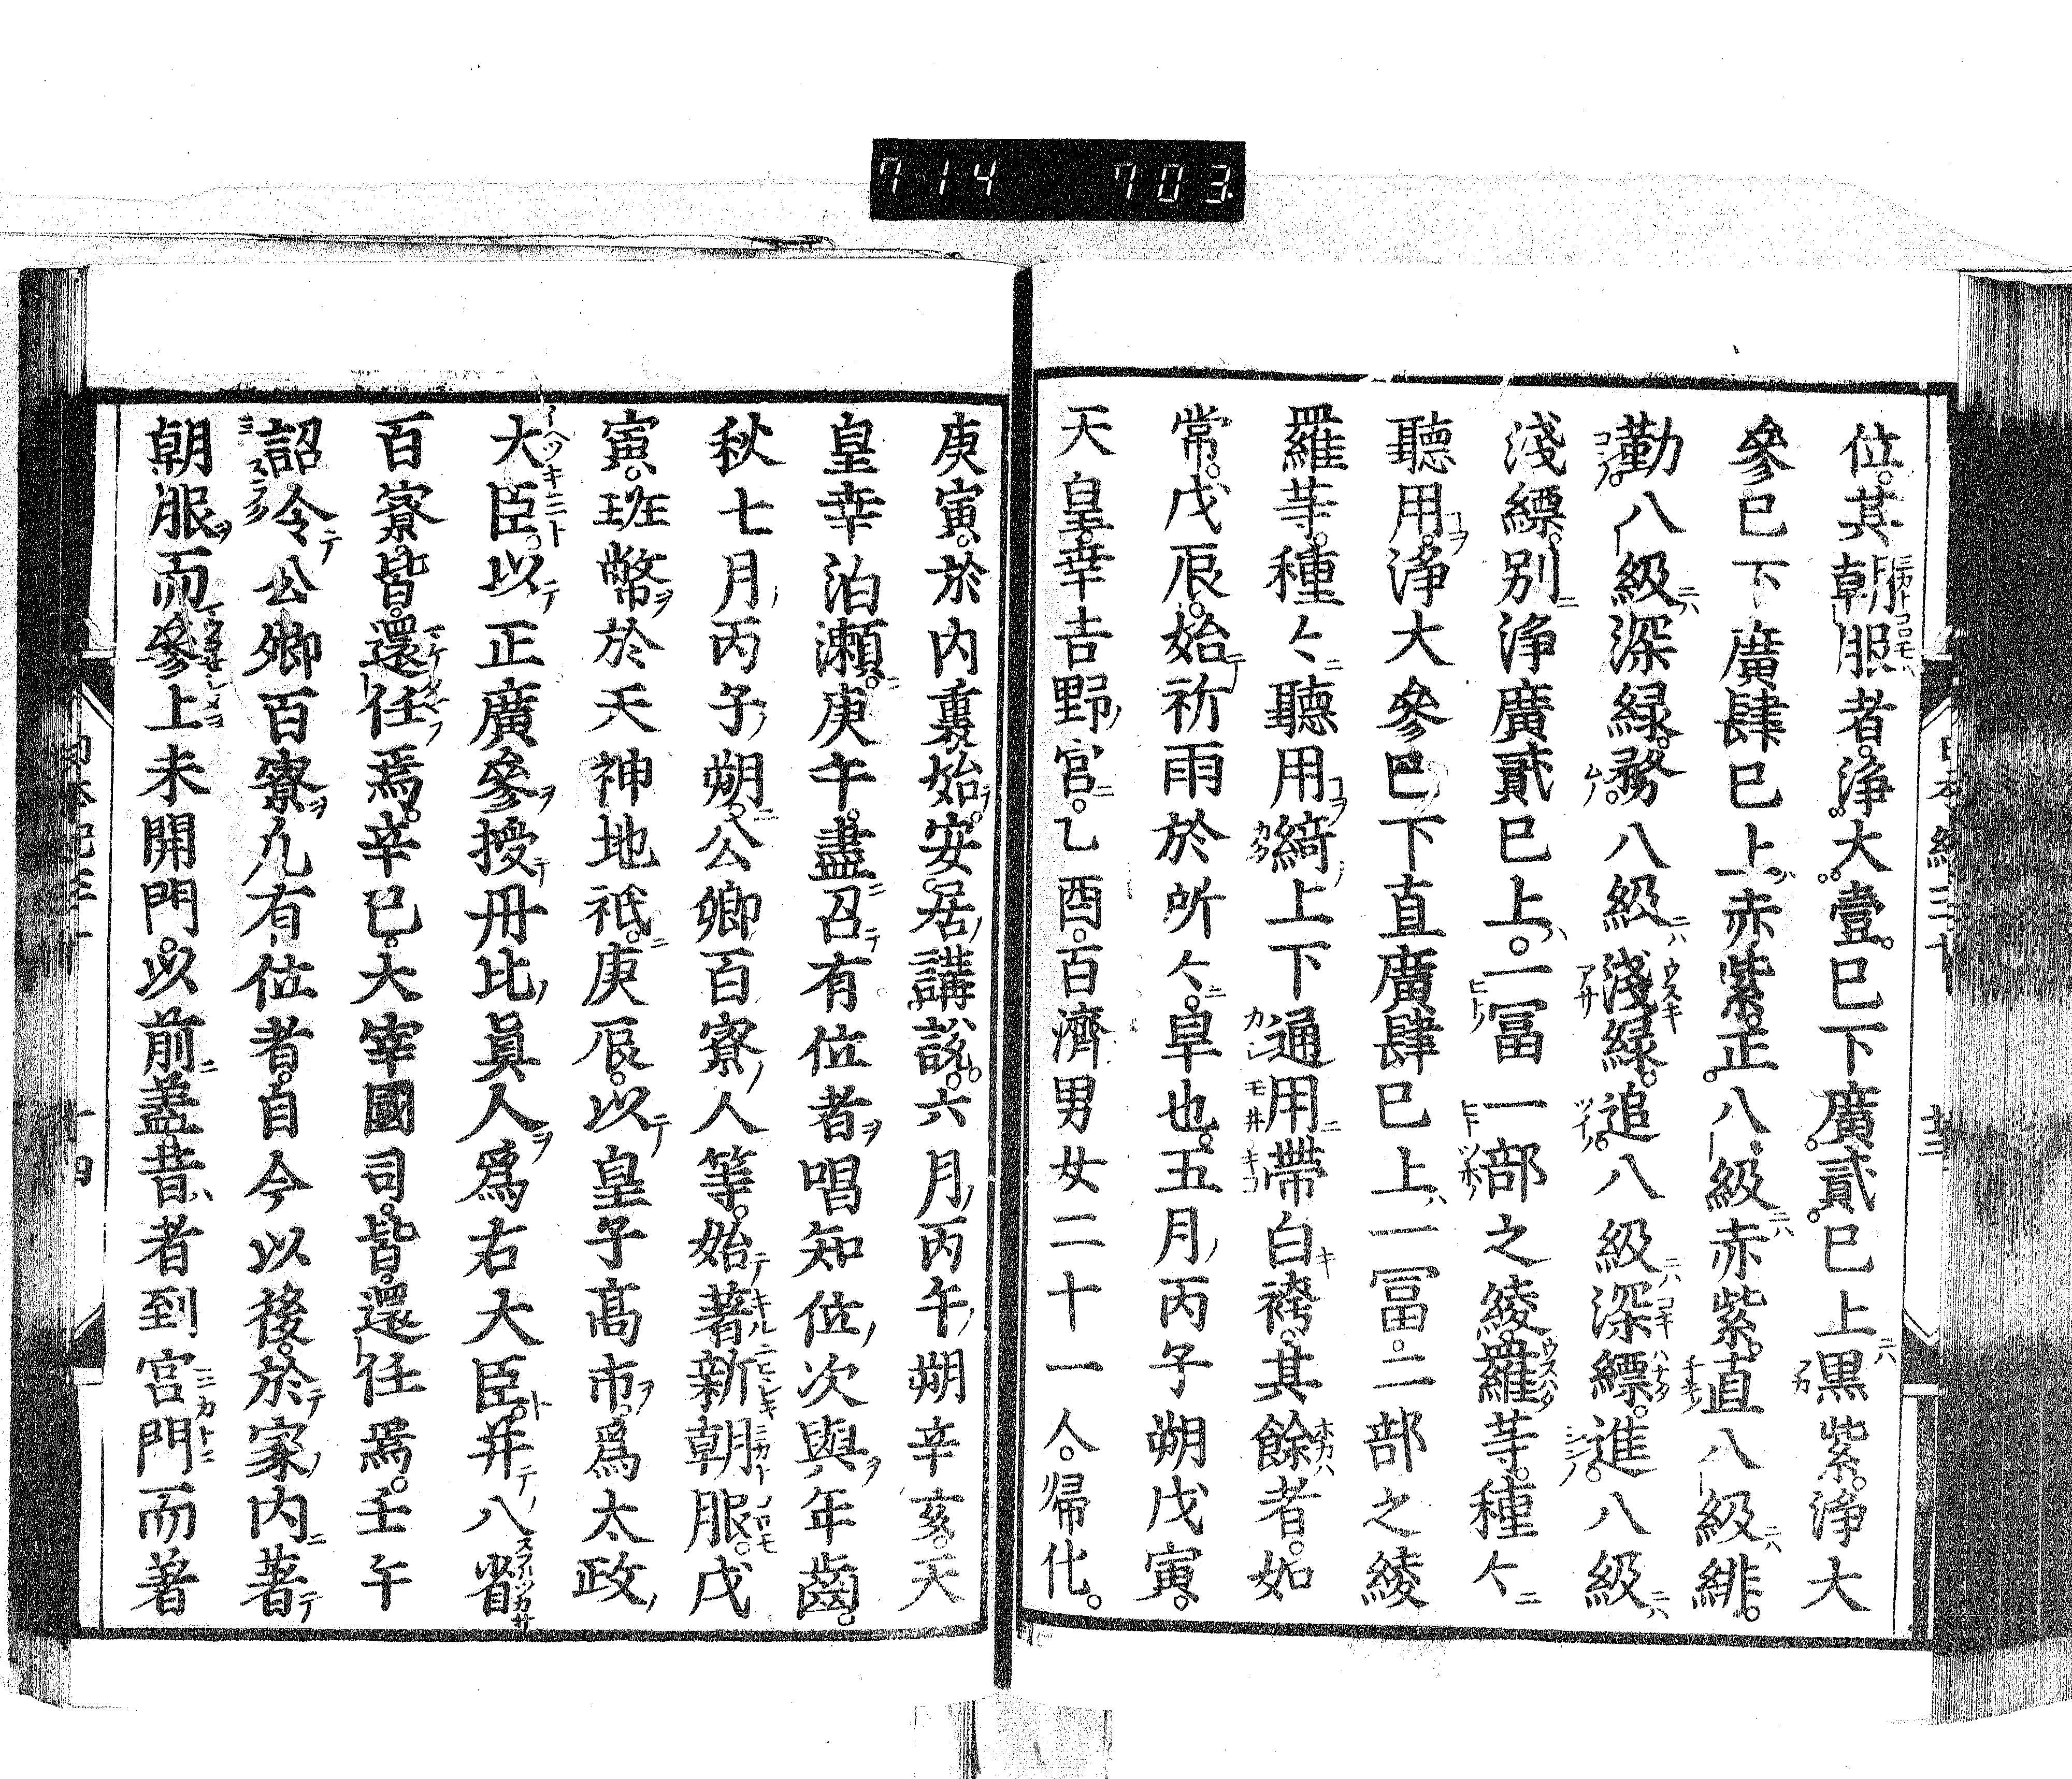 714 703
位其朝服者淨大壹已下廣貳已上黒紫淨大
參已下廣肆已上赤紫正八級赤紫直八級緋
勤八級深緑務八級淺緑追八級深縹進八級
淺縹別淨廣貳已上一冨一部之綾羅䒭種〻
聽用淨大參已下直廣肆已上一冨二部之綾
羅䒭種〻聽用綺上下通用帶白袴其餘者如
常戊辰始祈雨於所〻旱也五月丙子朔戊寅
天皇幸吉野宮乙酉百濟男女二十一人帰化
庚寅於内裏始安居講説六月丙午朔辛亥天
皇幸泊瀬庚午盡召有位者唱知位次與年齒
秋七月丙子朔公卿百寮人等始著新朝服戊
寅班幣於天神地祇庚辰以皇子髙市爲太政
大臣以正廣參授丹比眞人爲右大臣并八省
百寮皆還任焉辛巳大宰國司皆還任焉壬午
詔令公卿百寮凢有位者自今以後於家内著
朝服而參上未開門以前盖昔者到宮門而著